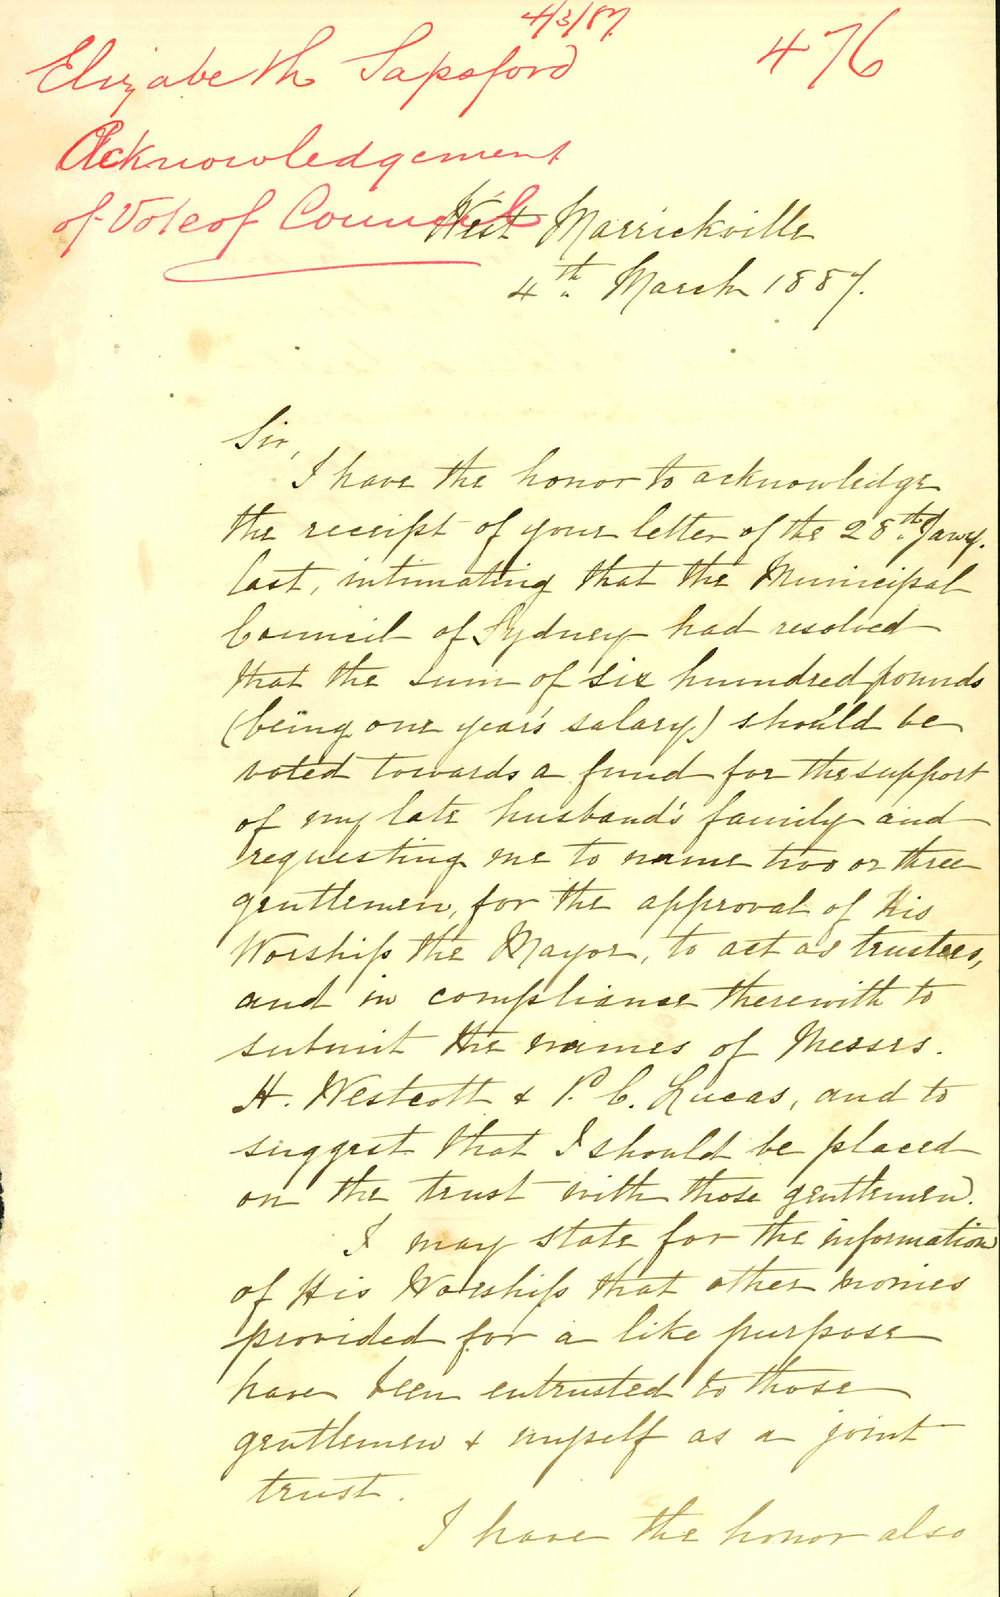 4/3/87
476
Elizabeth Sapsford
Acknowledgement
of Vote of Council
West Marrickville
4th. March 1887.
Sir,
I have the honor to acknowledge
the receipt of your letter of the 28th. Jany.
last, intimating that the Municipal
Council of Sydney had resolved
that the sum of six hundred pounds
(being one year's salary) should be
voted towards a fund for the support
of my late husband's family and
requesting me to name two or three
gentlemen, for the approval of His
Worship the Mayor, to act as trustees,
and in compliance therewith to
submit the names of Messrs.
H. Westcott & P. C. Lucas, and to
suggest that I should be placed
on the trust with those gentlemen.
I may state for the information
of His Worship that other monies
provided for a like purpose
have been entrusted to those
gentlemen & myself as a joint
trust.
I have the honor also